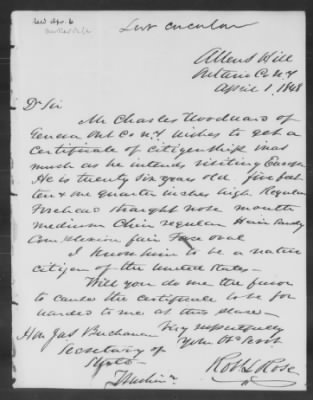 Sent circular
Allens Hill
Ontario Co. N.Y
April 1. 1848
Dr Sir
Mr Charles Woodward of
Geneva Ont Co N.Y. wishes to get a
Certificate of Citizenship inas
much as he intends visiting Europe
He is twenty six years old five feet
ten & one quarter inches high Regular
Forehead straight nose mouth
medium Chin regular Hair Sandy
Complexion fair Face oval
I Know him to be a native
citizen of the United States—
Will you do me the favor
to cause the certificate to be for
warded to me at this place—
Very respectfully
Hon Jas Buchanan Your Ob Servt
Secretary of
State
Robt L Rose
Washin